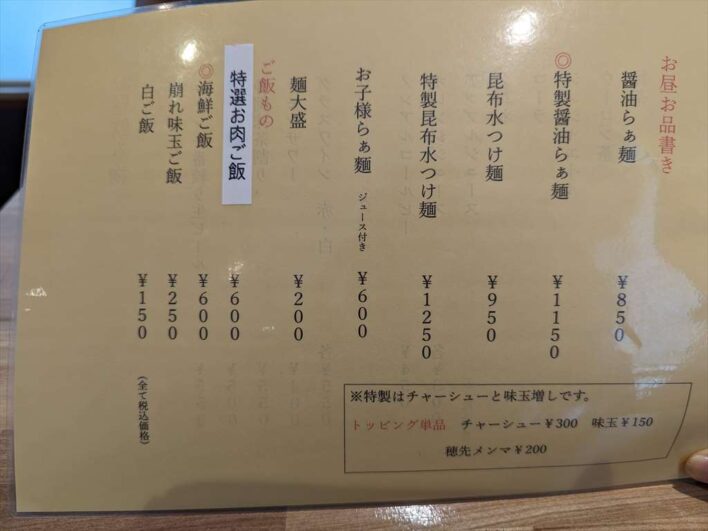 お昼お品書き
醤油らぁ麺 ¥850
◎特製醤油らぁ麺 ¥1150
昆布水つけ麺 ¥950
特製昆布水つけ麺 ¥1250
お子様らぁ麺 ジュース付き ¥600
麺大盛 ¥200
ご飯もの
特選お肉ご飯 ¥600
◎海鮮ご飯 ¥600
崩れ味玉ご飯 ¥250
白ご飯 ¥150
(全て税込価格)
※特製はチャーシューと味玉増しです。
トッピング単品 チャーシュー¥300 味玉¥150
穂先メンマ¥200